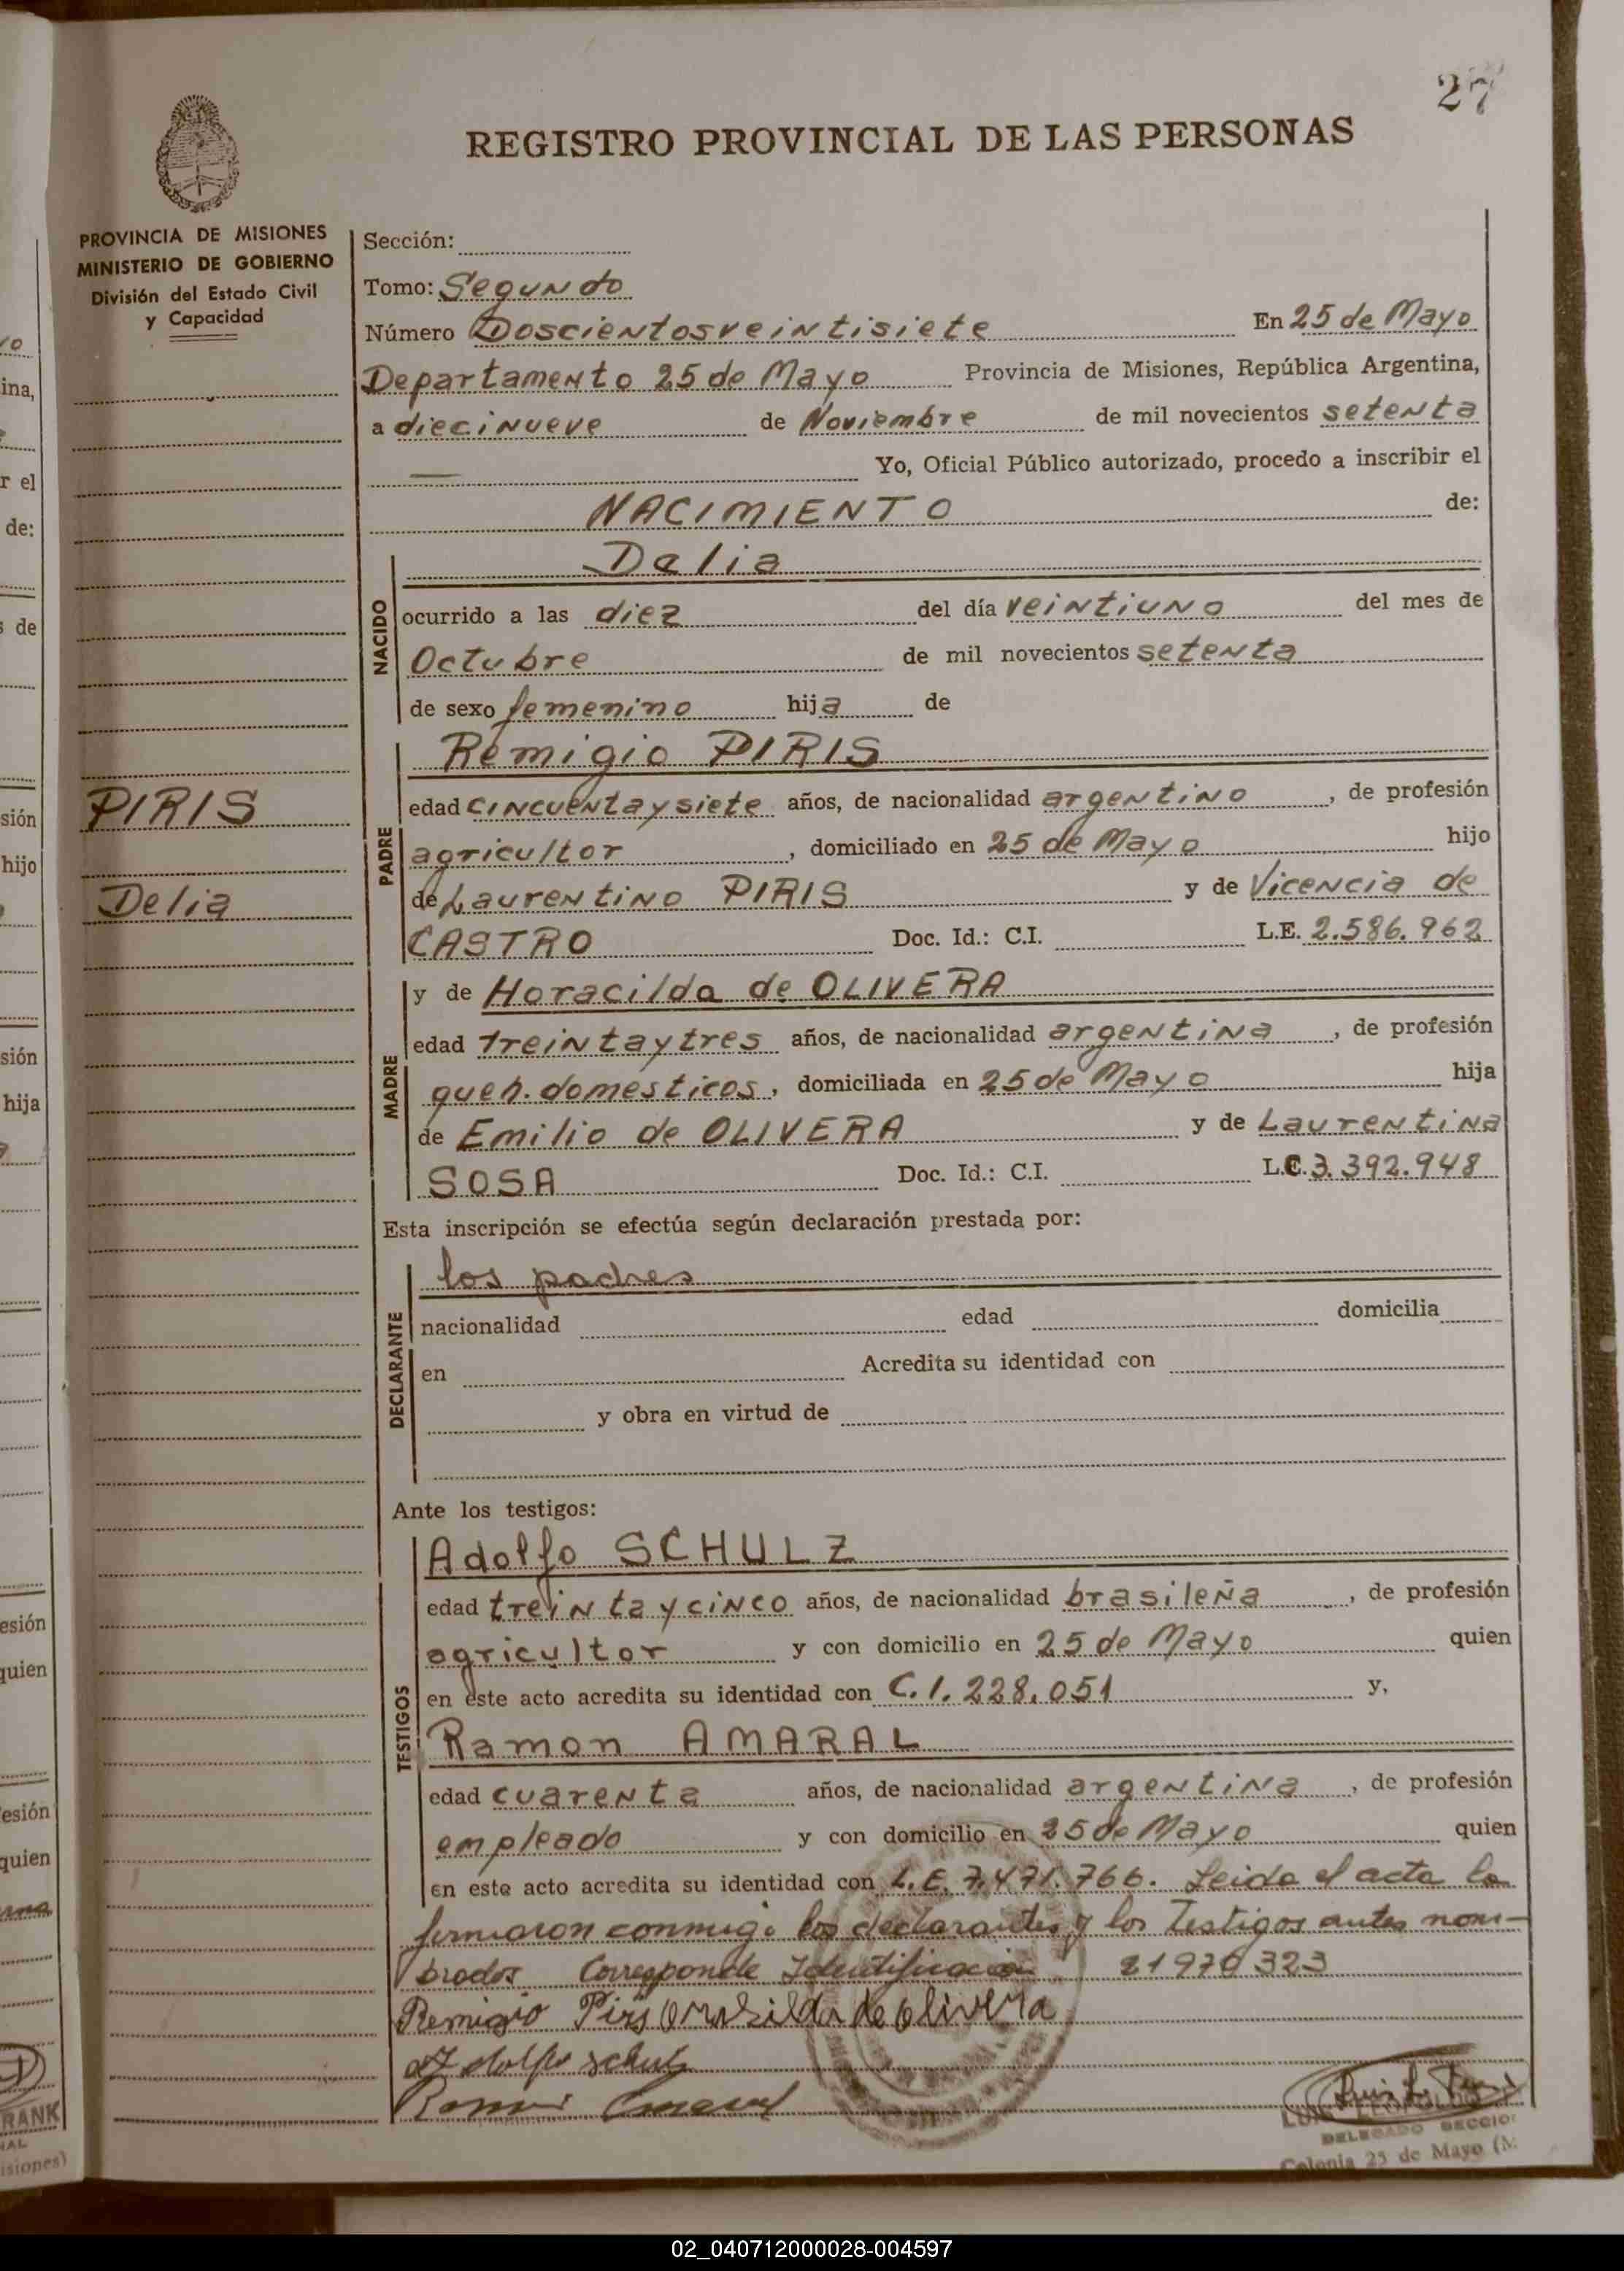 27
REGISTRO PROVINCIAL DE LAS PERSONAS
PROVINCIA DE MISIONES
MINISTERIO DE GOBIERNO
División del Estado Civil
y Capacidad
Sección:
Tomo: Segundo
Número Doscientosveintisiete En 25 de Mayo
Departamento 25 de Mayo Provincia de Misiones, República Argentina,
a diecinueve de Noviembre de mil novecientos setenta
— Yo, Oficial Público autorizado, procedo a inscribir el
NACIMIENTO de:
NACIDO
Delia
ocurrido a las diez del día veintiuno del mes de
Octubre de mil novecientos setenta
de sexo femenino hija de
PIRIS
Delia
PADRE
Remigio PIRIS
edad cincuentaysiete años, de nacionalidad argentino, de profesión
agricultor, domiciliado en 25 de Mayo hijo
de Laurentino PIRIS y de Vicencia de
CASTRO Doc. Id.: C.I. L.E. 2.586.962
MADRE
y de Horacilda de OLIVERA
edad treintaytres años, de nacionalidad argentina, de profesión
queh. domesticos, domiciliada en 25 de Mayo hija
de Emilio de OLIVERA y de Laurentina
SOSA Doc. Id.: C.I. L.C. 3.392.948
Esta inscripción se efectúa según declaración prestada por:
DECLARANTE
los padres
nacionalidad edad domicilia
en Acredita su identidad con
y obra en virtud de
Ante los testigos:
TESTIGOS
Adolfo SCHULZ
edad treintaycinco años, de nacionalidad brasileña, de profesión
agricultor y con domicilio en 25 de Mayo quien
en este acto acredita su identidad con C.I. 228.051 y,
Ramon AMARAL
edad cuarenta años, de nacionalidad argentina, de profesión
empleado y con domicilio en 25 de Mayo quien
en este acto acredita su identidad con L.E. 7.471.766. Leida el acta la
firmaron conmigo los declarantes y los Testigos antes nom-
brados Corresponde Identificación 21970323
Remigio Piris de Olivera
Adolfo Schulz
Ramon Amaral
DELEGADO SECCIO
Colonia 25 de Mayo (M
02_040712000028-004597